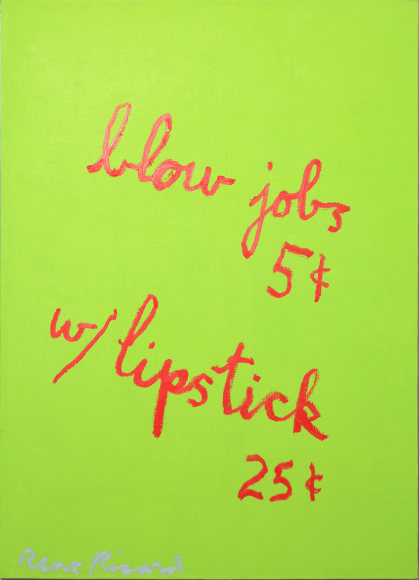 blow jobs
5¢
w/ lipstick
25¢
Rene Ricard